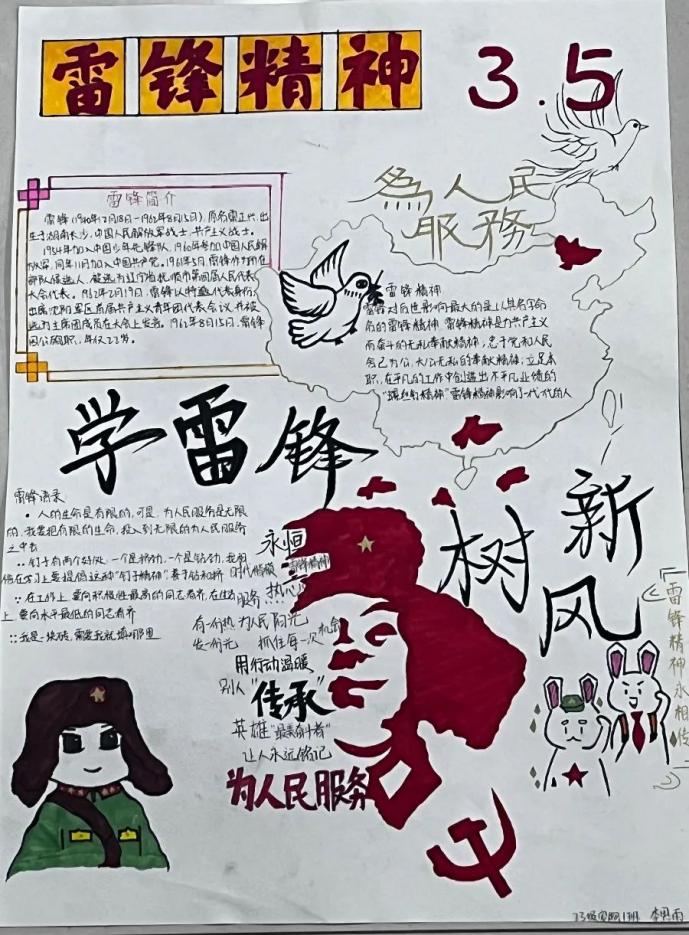 雷锋精神
3.5
雷锋简介
雷锋(1940年12月18日-1962年8月15日),原名雷正兴,出
生于湖南长沙,中国人民解放军战士,共产主义战士。
1954年加入中国少年先锋队,1960年参加中国人民解
放军,同年11月加入中国共产党。1961年5月,雷锋作为所在
部队候选人,被选为辽宁省抚顺市第四届人民代表
大会代表。1962年2月19日,雷锋以特邀代表身份,
出席沈阳军区首届共产主义青年团代表会议,并被
选为主席团成员在大会上发言。1962年8月15日,雷锋
因公殉职,年仅22岁。
为人民
服務
雷锋精神
雷锋对后世影响最大的是以其名字命
名的雷锋精神,雷锋精神是为共产主义
而奋斗的无私奉献精神,忠于党和人民
舍己为公,大公无私的奉献精神,立足本
职,在平凡的工作中创造出不平凡业绩的
"螺丝钉精神"雷锋精神影响了一代一代的人
学雷锋
树新风
雷锋语录
人的生命是有限的,可是,为人民服务是无限
的,我要把有限的生命,投入到无限的为人民服务
之中去
钉子有两个好处,一个是挤劲,一个是钻劲,我们
在学习上要提倡这种"钉子精神"善于钻和挤
在工作上,要向积极性最高的同志看齐,在生活
上,要向水平最低的同志看齐
我是一块砖,需要我就填哪里
永恒
时代楷模
雷锋精神
服务
热心
有一份热 为人民闪光
发一份光 抓住每一次机会
用行动温暖
别人
"传承"
英雄"最美奋斗者"
让人永远铭记
为人民服务
雷锋精神永相传